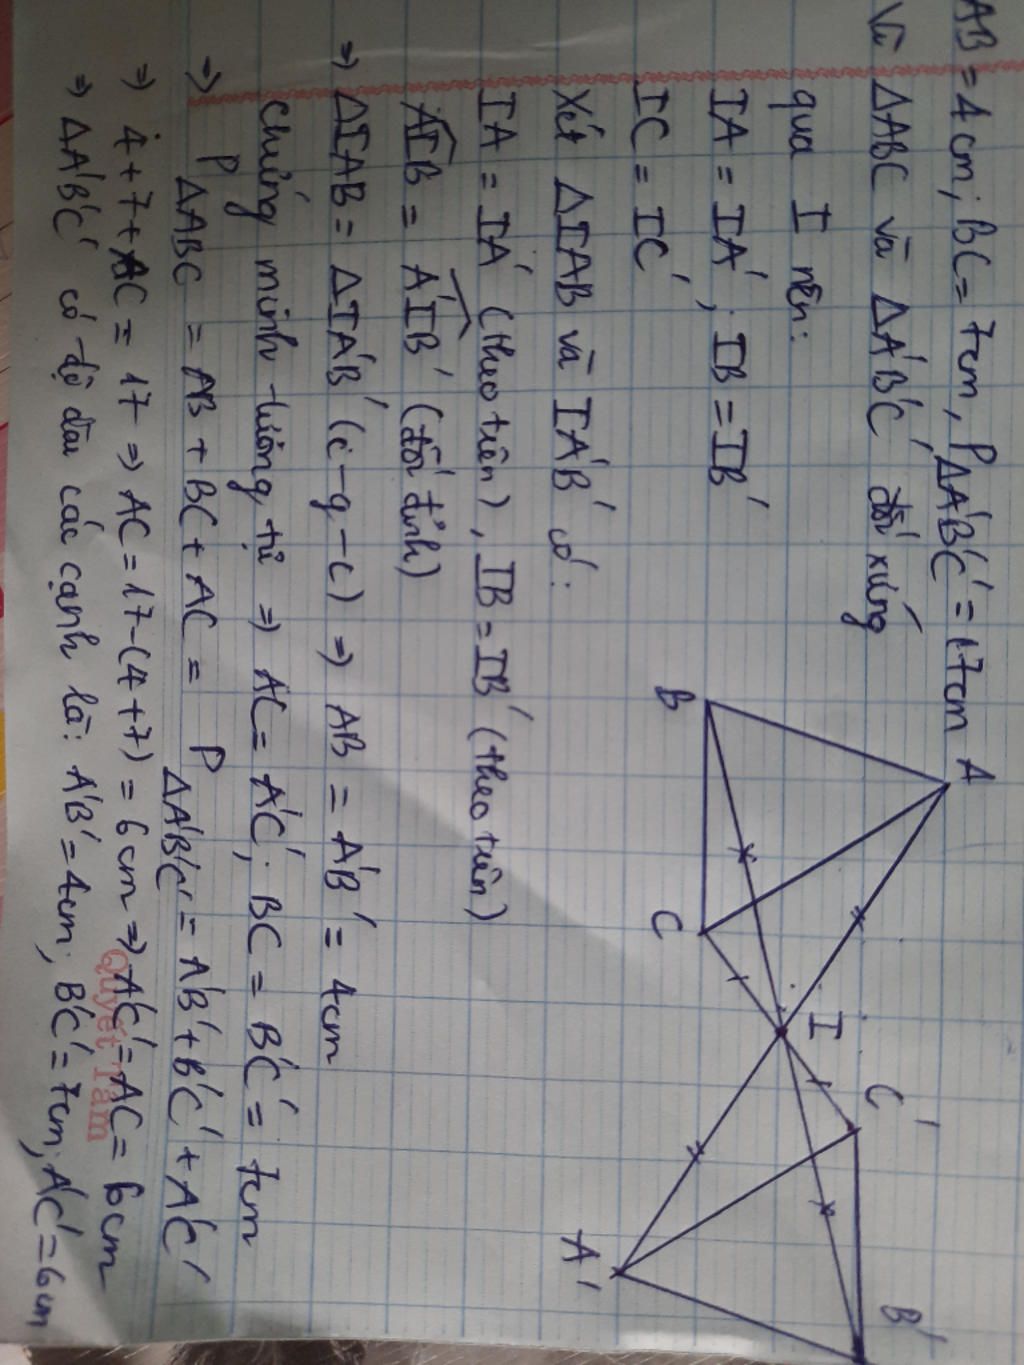 AB = 4cm; BC = 7cm, PΔA'B'C' = 17cm
Vì ΔABC và ΔA'B'C' đối xứng
qua I nên:
IA = IA'; IB = IB'
IC = IC'
Xét ΔIAB và IA'B' có:
IA = IA' (theo trên), IB = IB' (theo trên)
AIB = A'IB' (đối đỉnh)
⇒ ΔIAB = ΔIA'B' (c-g-c) ⇒ AB = A'B' = 4cm
Chứng minh tương tự ⇒ AC = A'C'; BC = B'C' = 7cm
⇒ PΔABC = AB + BC + AC = PΔA'B'C' = A'B' + B'C' + A'C'
⇒ 4 + 7 + AC = 17 ⇒ AC = 17-(4+7) = 6cm ⇒ A'C' = AC = 6cm
⇒ ΔA'B'C' có độ dài các cạnh là: A'B' = 4cm; B'C' = 7cm; A'C' = 6cm
A
B
C
I
C'
A'
B'
Quyết Tâm